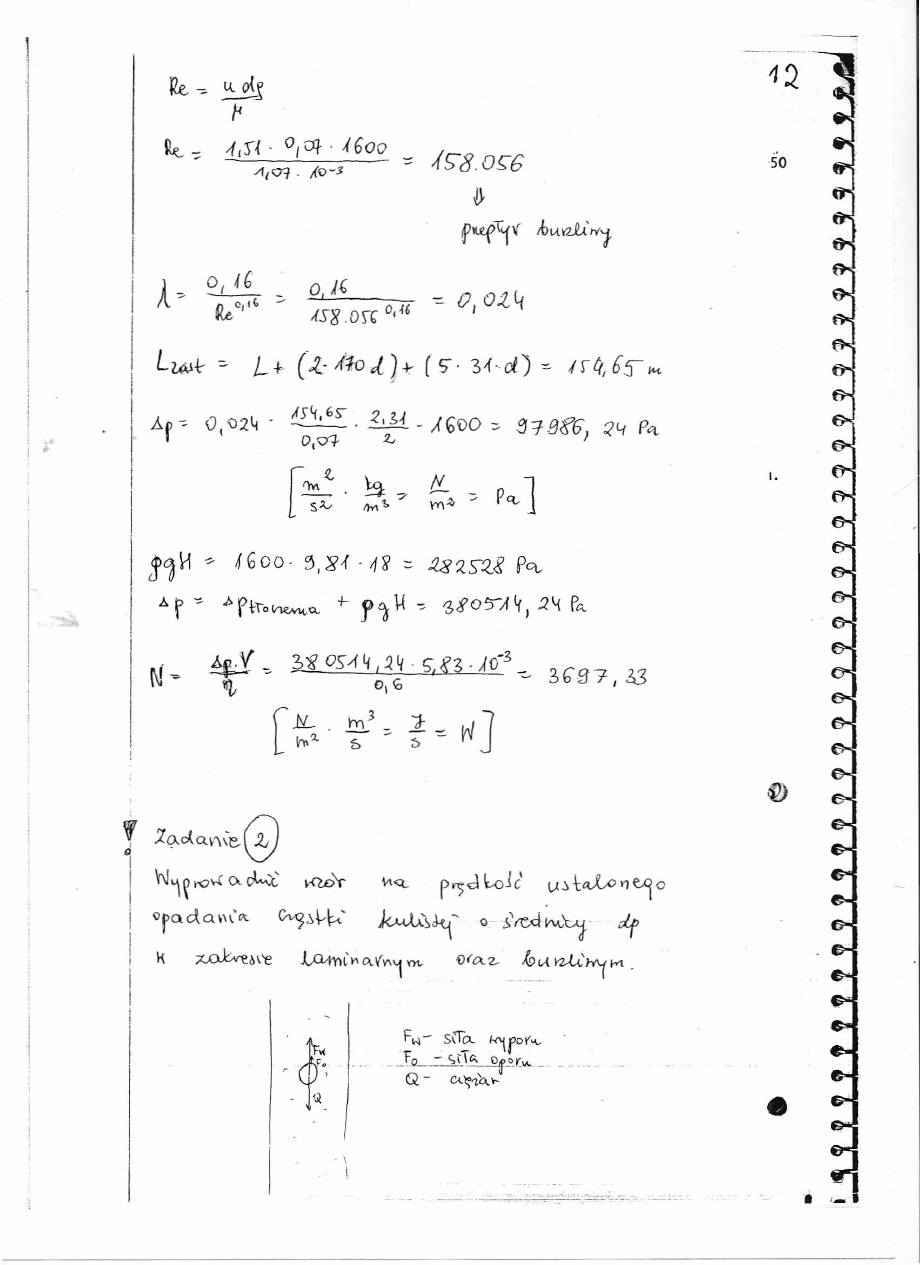 12
Re = u dρ / μ
Re = 1,51 · 0,07 · 1600 / 1,07 · 10⁻³ = 158.056
50
⇓
przepływ burzliwy
λ = 0,16 / Re^0,16 = 0,16 / 158.056^0,16 = 0,024
Lzast = L + (2·170d) + (5·31·d) = 154,65 m
Δp = 0,024 · 154,65 / 0,07 · 2,31 / 2 · 1600 = 97986,24 Pa
[m² / s² · kg / m³ = N / m² = Pa]
1.
ρgH = 1600 · 9,81 · 18 = 282528 Pa
Δp = Δptłoczenia + ρgH = 380514,24 Pa
N = Δp·V / η = 380514,24 · 5,83 · 10⁻³ / 0,6 = 3697,33
[N / m² · m³ / s = J / s = W]
! Zadanie 2
Wyprowadzić wzór na prędkość ustalonego
opadania cząstki kulistej o średnicy dp
w zakresie laminarnym oraz burzliwym.
Fw
Fo
Q
Fw - siła wyporu
Fo - siła oporu
Q - ciężar